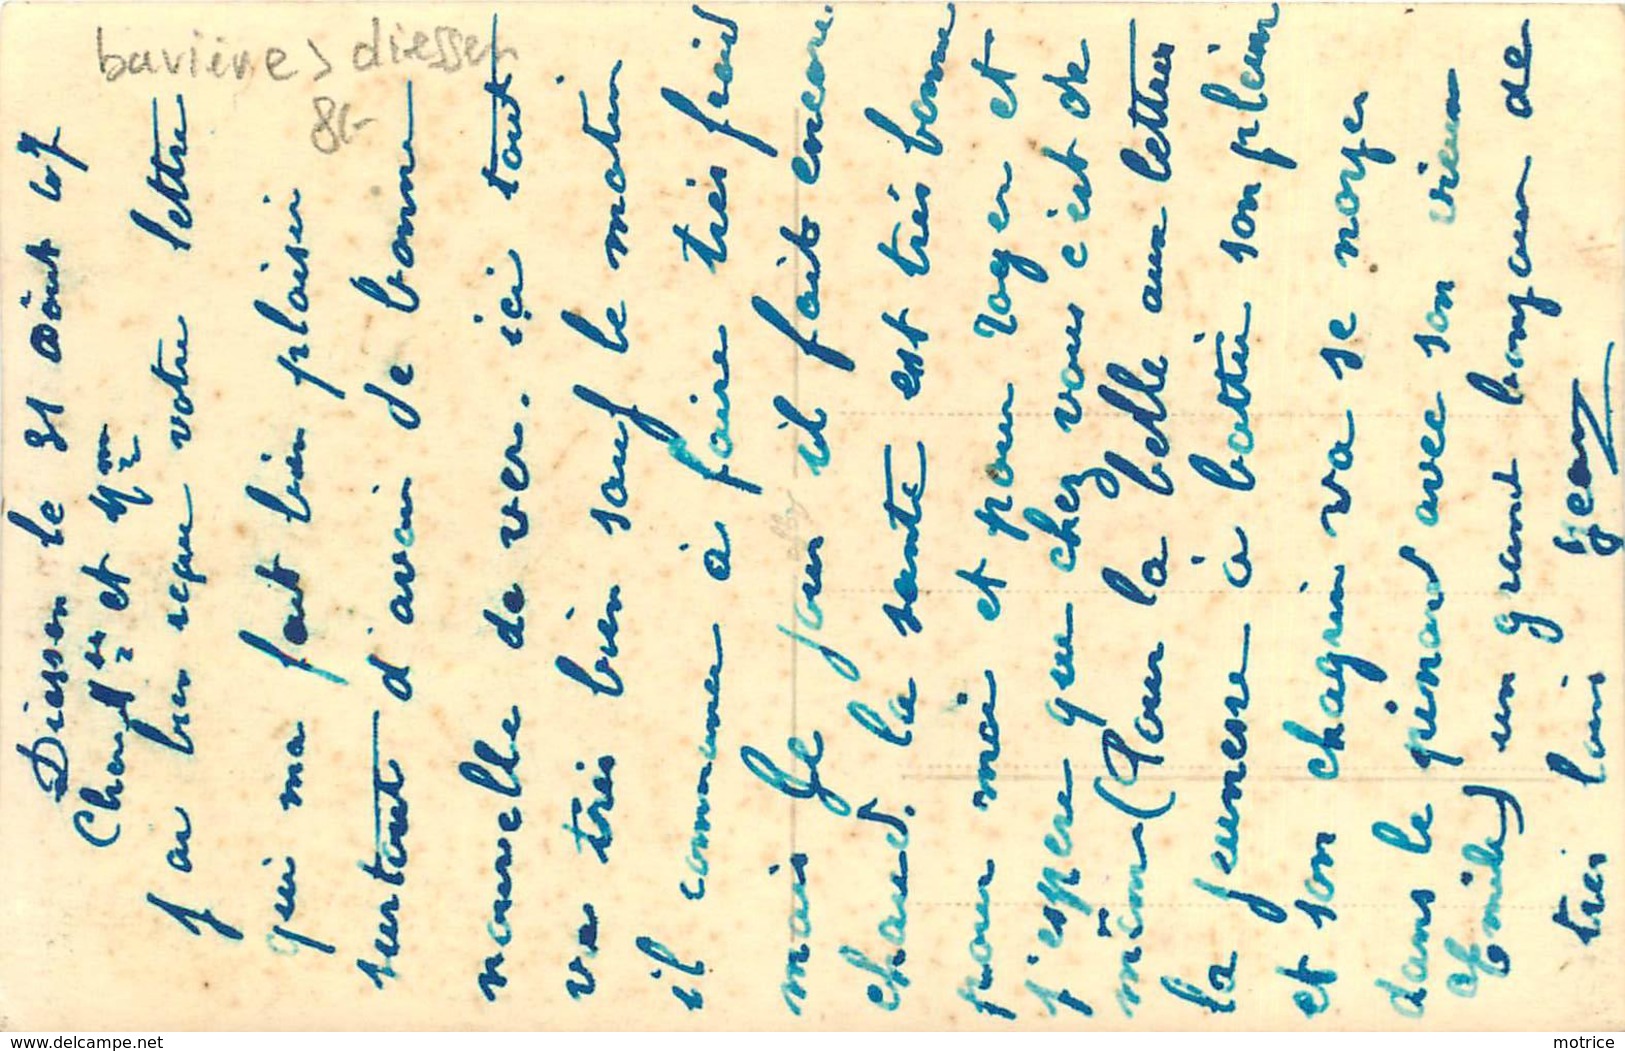 bavière > diessen
8€-
Diessen le 31 août 47
Cher Mr et Mme
j'ai bien reçu votre lettre
qui ma fait bien plaisir
surtout d'avoir de bonne
nouvelle de ver. içi tout
va très bien sauf le matin
il commence à faire très froid
mais le jour il fait encore
chaud. la santé est très bonne
pour moi et pour roger et
j'espere que chez vous c'est de
même (Pour la belle aux lettres
la jeunesse à battu son plein
et son chagrin va se noyer
dans le pinard avec son vieux
Emile) un grand bonjour de
très loin Jean
www.delcampe.net
matrice